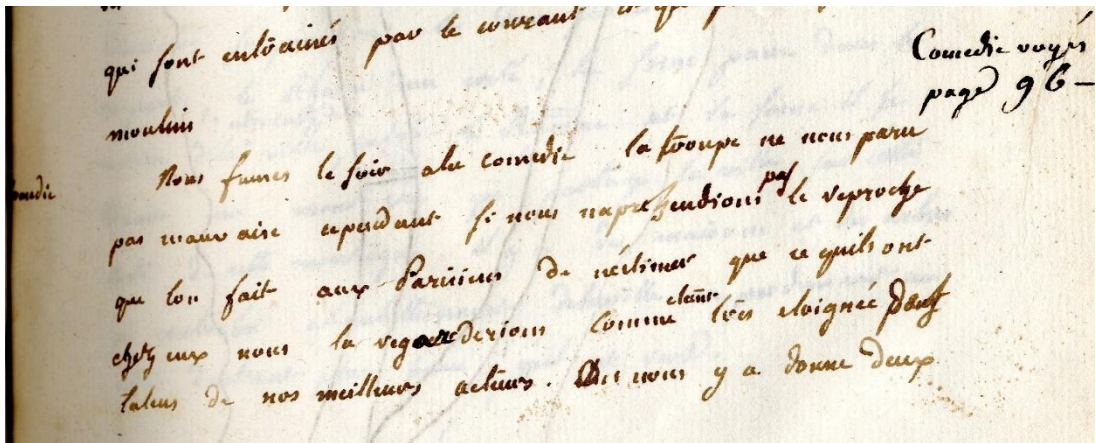 qui sont entrainés par le courant
Comedie voyés
page 96 –
moulin
Comedie
Nous fumes le soir ala comedie la troupe ne nous paru
pas mauvaise cependant si nous naprehendions pas le reproche
que lon fait aux Parisiens de nestimer que ce quils ont
chez eux nous la regarderions comme etant tres eloignée des
talens de nos meilleurs acteurs. On nous y a donné deux